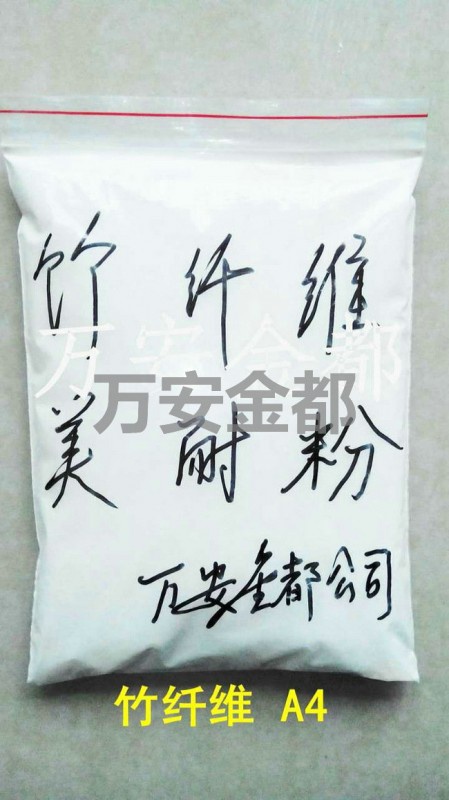 竹纤维
万安金都
万安金都
美耐粉
万安金都公司
竹纤维 A4